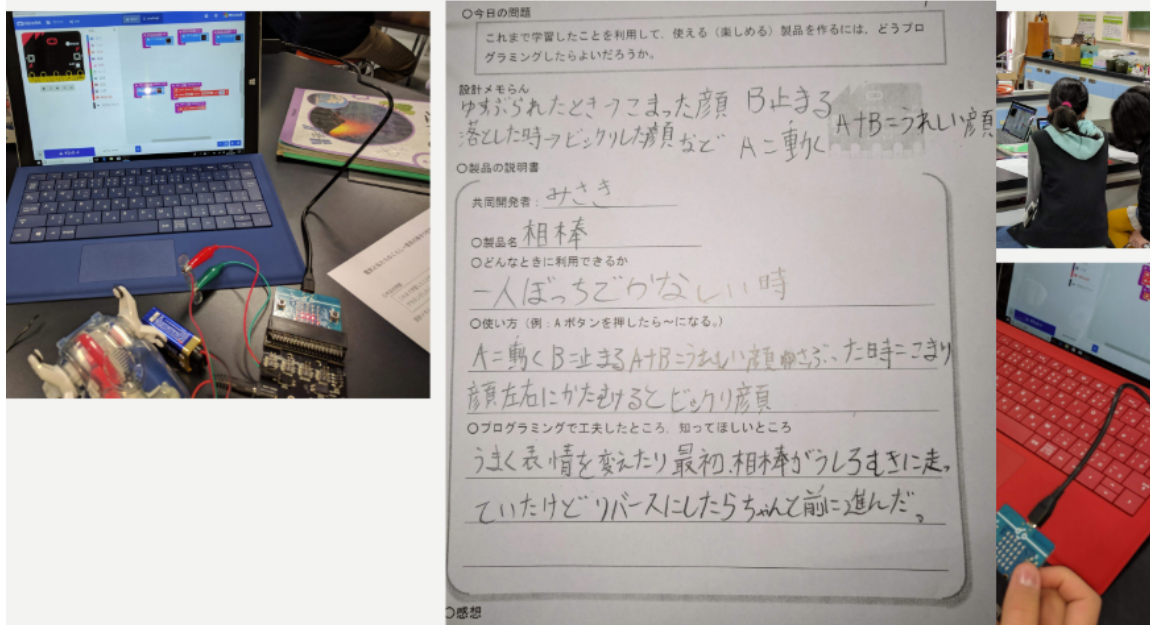 ○今日の問題
これまで学習したことを利用して、使える（楽しめる）製品を作るには、どうプロ
グラミングしたらよいだろうか。
設計メモらん
ゆすぶられたとき→こまった顔 B止まる
落とした時→ビックリした顔など A=動く
A+B=うれしい顔
○製品の説明書
共同開発者：みさき
○製品名 相棒
○どんなときに利用できるか
一人ぼっちでかなしい時
○使い方（例：Aボタンを押したら～になる。）
A=動く B=止まる A+B=うれしい顔 ゆさぶった時=こまり
顔左右にかたむけるとビックリ顔
○プログラミングで工夫したところ、知ってほしいところ
うまく表情を変えたり最初、相棒がうしろむきに走っ
ていたけどリバースにしたらちゃんと前に進んだ。
○感想